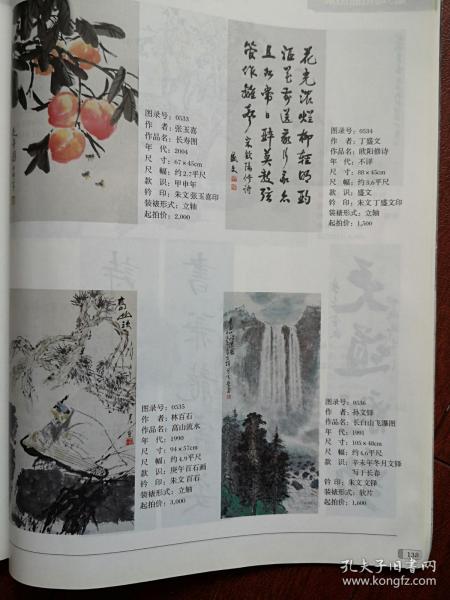 图录号：0533
作　者：张玉喜
作品名：长寿图
年　代：2004
尺　寸：67×45cm
尺　幅：约2.7平尺
款　识：甲申年
钤　印：朱文张玉喜印
装裱形式：立轴
起拍价：2,000
花光浓烂柳轻明酌
酒花前送我行我亦
且如常日醉莫教弦
管作离声 宋欧阳修诗
盛文
图录号：0534
作　者：丁盛文
作品名：欧阳修诗
年　代：不详
尺　寸：88×45cm
尺　幅：约3.6平尺
款　识：盛文
钤　印：朱文丁盛文印
装裱形式：立轴
起拍价：1,500
图录号：0535
作　者：林百石
作品名：高山流水
年　代：1990
尺　寸：94×57cm
尺　幅：约4.9平尺
款　识：庚午百石画
钤　印：朱文百石
装裱形式：立轴
起拍价：3,000
图录号：0536
作　者：孙文铎
作品名：长白山飞瀑图
年　代：1991
尺　寸：105×40cm
尺　幅：约4.6平尺
款　识：辛未年冬月文铎
写于长春
钤　印：朱文文铎
装裱形式：软片
起拍价：1,600
138
孔夫子旧书网
www.kongfz.com